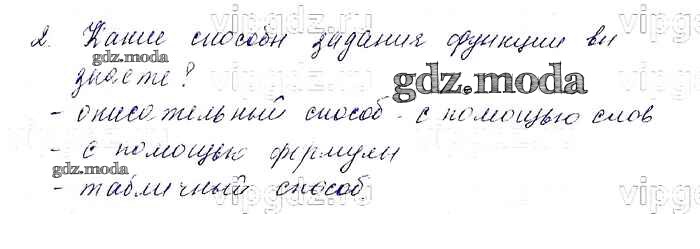 vipgdz.ru
2. Какие способы задания функции вы
gdz.moda
знаете?
gdz.moda
- описательный способ - с помощью слов
- с помощью формулы
gdz.moda
- табличный способ
vipgdz.ru